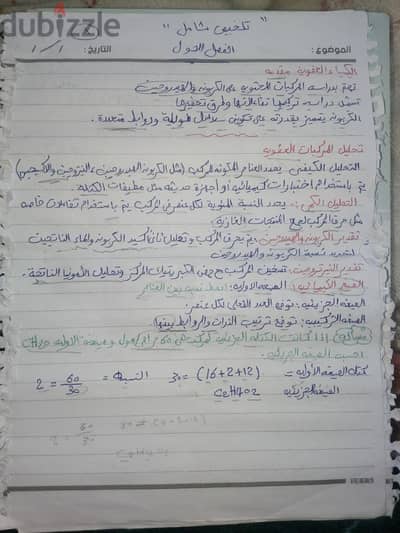 dubizzle
" تلخيص شامل "
الموضوع: الفصل الاول التاريخ: 1 / 1
الكيمياء العضوية مقدمه
تهتم بدراسه المركبات المحتويه على الكربون والهيدروجين
تشمل دراسه تركيبها تفاعلاتها وطرق تحضيرها
الكربون يتميز بقدرته على تكوين سلاسل طويلة وروابط متعددة.
تحليل المركبات العضويه
التحليل الكيفي: يحدد العناصر المكونه للمركب (مثل الكربون، الهيدروجين، النتروجين والأكسجين)
يتم باستخدام اختبارات كيميائيه أو أجهزة حديثه مثل مطيافات الكتلة.
التحليل الكمي: يحدد النسبة المئوية لكل عنصر في المركب يتم باستخدام تفاعلات خاصه
مثل حرق المركب لجمع المنتجات الغازية.
تقدير الكربون والهيدروجين يتم بحرق المركب وتحليل ثاني اكسيد الكربون والماء الناتجين
لتحديد نسبة الكربون والهيدروجين
تقدير النيتروجين: تسخين المركب مع حمض الكبريتيك المركز وتحليل الأمونيا الناتجة.
الصيغ الكيميائيه: الصيغه الاوليه: ابسط نسبه بين العناصر
الصيغه الجزيئيه: توضح العدد الفعلي لكل عنصر.
الصيغه التركيبيه: توضح ترتيب الذرات والروابط بينها.
مسأله) اذا كانت الكتله الجزيئية لمركب هي 60 جرام/مول وصيغته الاوليه CH2O
احسب الصيغه الجزيئيه.
كتله الصيغه الأوليه = (16+2+12) = 30 النسبه = 60/30 = 2
الصيغه الجزيئيه C2H4O2